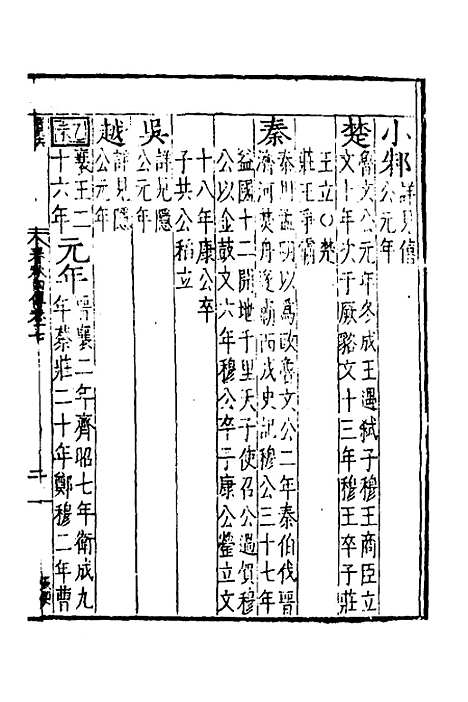 小邾詳見僖
公元年
楚魯文公元年冬成王遇弑子穆王商臣立
文十年次于厥貉文十三年穆王卒子莊
王立○楚
莊王爭霸
秦秦用孟明以為政魯文公二年秦伯伐晉
濟河焚舟遂霸西戎史記穆公三十七年
益國十二開地千里天子使召公過賀穆
公以金鼓文六年穆公卒子康公罃立文
十八年康公卒
子共公稻立
吳詳見隱
公元年
越詳見隱
公元年
乙未襄王二
十六年元年晉襄二年齊昭七年衛成九
年蔡莊二十年鄭穆二年曹
春秋四傳卷十七